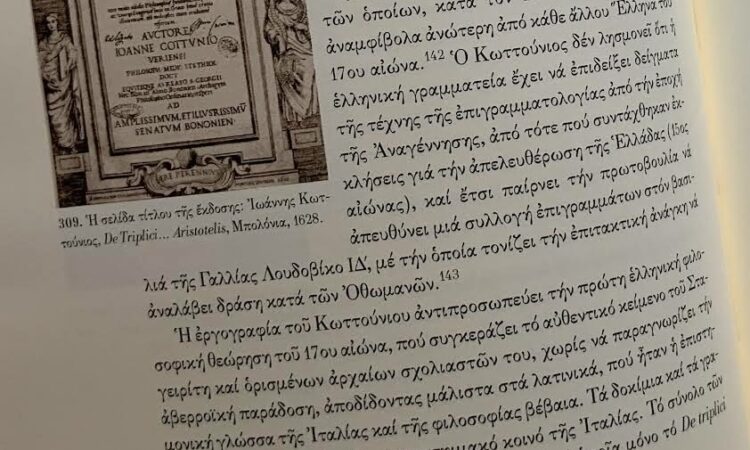 AVCTORE
IOANNE COTTVNIO
VERIENSI
PHILOSOPHIAE
AD
AMPLISSIMVM, ET ILLVSTRISSIMVM
SENATVM BONONIEN.
ÆRE PERENNIVS
309. Ἡ σελίδα τίτλου τῆς ἔκδοσης: Ἰωάννης Κωτ-
τούνιος, De Triplici... Aristotelis, Μπολόνια, 1628.
τῶν ὁποίων, κατά τόν
ἀναμφίβολα ἀνώτερη ἀπό κάθε ἄλλου Ἕλληνα τοῦ
17ου αἰώνα.142 Ὁ Κωττούνιος δέν λησμονεῖ ὅτι ἡ
ἑλληνική γραμματεία ἔχει νά ἐπιδείξει δείγματα
τῆς τέχνης τῆς ἐπιγραμματολογίας ἀπό τήν ἐποχή
τῆς Ἀναγέννησης, ἀπό τότε πού συντάχθηκαν ἐκ-
κλήσεις γιά τήν ἀπελευθέρωση τῆς Ἑλλάδας (15ος
αἰώνας), καί ἔτσι παίρνει τήν πρωτοβουλία νά
ἀπευθύνει μιά συλλογή ἐπιγραμμάτων στόν βασι-
λιά τῆς Γαλλίας Λουδοβίκο ΙΔ΄, μέ τήν ὁποία τονίζει τήν ἐπιτακτική ἀνάγκη νά
ἀναλάβει δράση κατά τῶν Ὀθωμανῶν.143
Ἡ ἐργογραφία τοῦ Κωττούνιου ἀντιπροσωπεύει τήν πρώτη ἑλληνική φιλο-
σοφική θεώρηση τοῦ 17ου αἰώνα, πού συγκεράζει τό αὐθεντικό κείμενο τοῦ Στα-
γειρίτη καί ὁρισμένων ἀρχαίων σχολιαστῶν του, χωρίς νά παραγνωρίζει τήν
ἀβερροϊκή παράδοση, ἀποδίδοντας μάλιστα στά λατινικά, πού ἦταν ἡ ἐπιστη-
μονική γλώσσα τῆς Ἰταλίας καί τῆς φιλοσοφίας βέβαια. Τά δοκίμια καί τά γρα-
κοινό τῆς Ἰταλίας. Τό σύνολο τῶν
μόνο τό De triplici